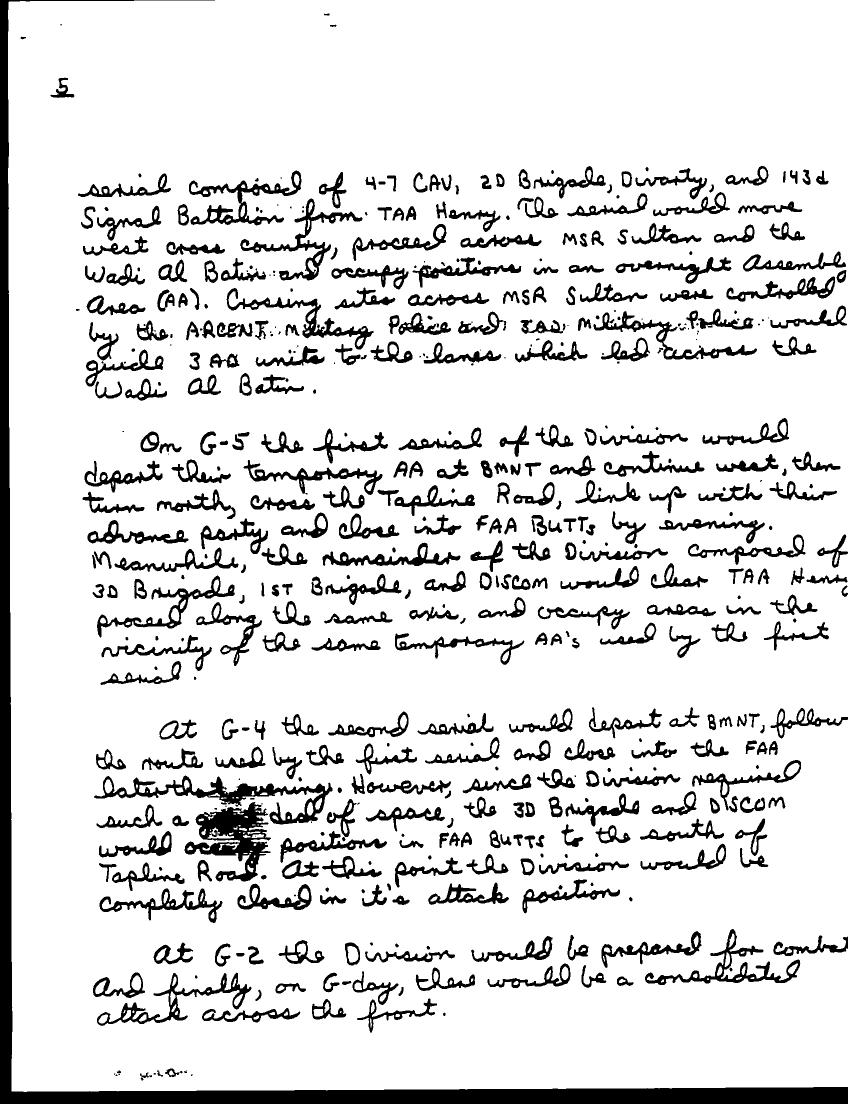 5
serial composed of 4-7 CAV, 2D Brigade, Divarty, and 143d
Signal Battalion from TAA Henry. The serial would move
west cross country, proceed across MSR Sultan and the
Wadi Al Batin and occupy positions in an overnight Assembly
Area (AA). Crossing sites across MSR Sultan were controlled
by the ARCENT Military Police and 3AD Military Police would
guide 3AD units to the lanes which led across the
Wadi Al Batin.
On G-5 the first serial of the Division would
depart their temporary AA at BMNT and continue west, then
turn north, cross the Tapline Road, link up with their
advance party and close into FAA BUTTs by evening.
Meanwhile, the remainder of the Division composed of
3D Brigade, 1ST Brigade, and DISCOM would clear TAA Henry
proceed along the same axis, and occupy areas in the
vicinity of the same temporary AA's used by the first
serial.
At G-4 the second serial would depart at BMNT, follow
the route used by the first serial and close into the FAA
later that evening. However, since the Division required
such a deal of space, the 3D Brigade and DISCOM
would occupy positions in FAA BUTTs to the south of
Tapline Road. At this point the Division would be
completely closed in it's attack position.
At G-2 the Division would be prepared for combat
And finally, on G-day, there would be a consolidated
attack across the front.